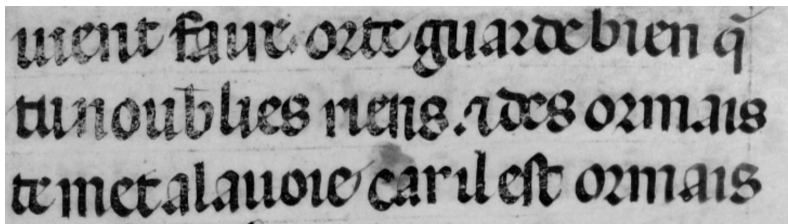 uient faire. orte guarde bien q̃
tu noublies riens. ⁊ des ormais
te met a la uoie car il est ormais